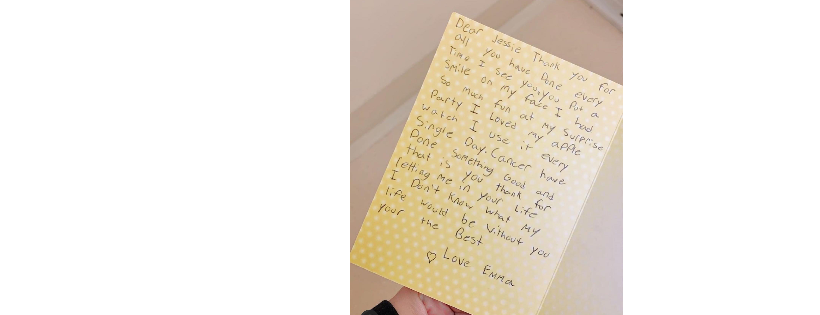 Dear Jessie Thank you for
all you have Done every
Time I see you,you Put a
Smile on my face I had
So much fun at my Surprise
Party I Loved my apple
watch I use it every
Single Day. Cancer have
Done Something Good and
that is you thank for
letting me in your life
I Don't know what my
life would be Without you
your the Best
♡ Love Emma